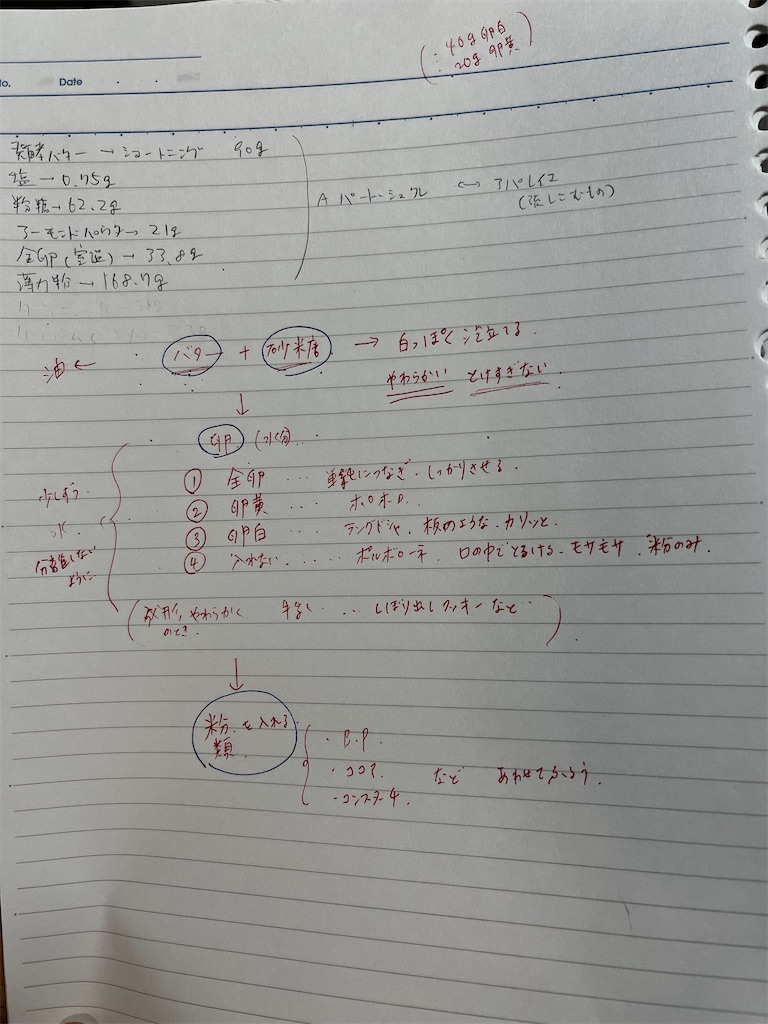 40g 卵白
20g 卵黄
No. Date
発酵バター → ショートニング 90g
塩 → 0.75g
粉糖 → 62.2g
アーモンドパウダー → 21g
全卵(室温) → 33.8g
薄力粉 → 168.7g
A パート・シュクレ ↔ アパレイユ
(流しこむもの)
油 ← バター + 砂糖 → 白っぽく泡立てる.
やわらかい とけすぎない.
↓
卵 (水分)...
少しずつ
水.
分離しない
ように
① 全卵 ... 単純につなぎ. しっかりさせる.
② 卵黄 ... ホロホロ.
③ 卵白 ... ラングドシャ. 板のような. カリッと.
④ 入れない ..... ポルボローネ. 口の中でとろける. モサモサ. 粉のみ.
(成形, やわらかく のとき. ... しぼり出しクッキーなど)
↓
粉類を入れる
・B.P.
・ココア.
・コンスターチ.
など あわせてふるう.